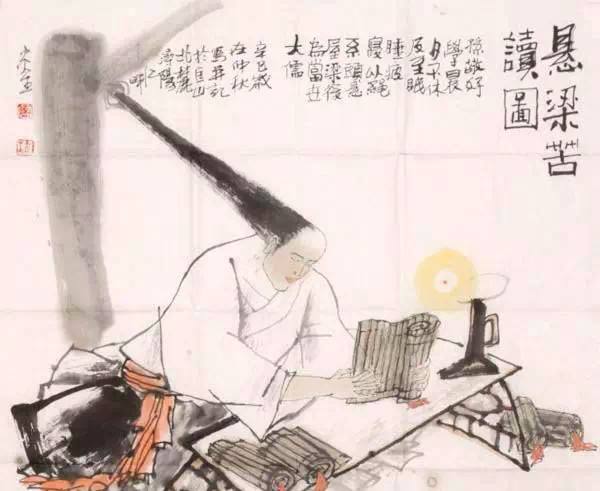 悬梁苦
讀圖
孫敬好
學晨
夕不休
及至眠
睡疲
寢以繩
系頭悬
屋梁後
為當世
大儒
辛巳歲
在仲秋
寫并記
於匡山
北麓
潯陽
之畔